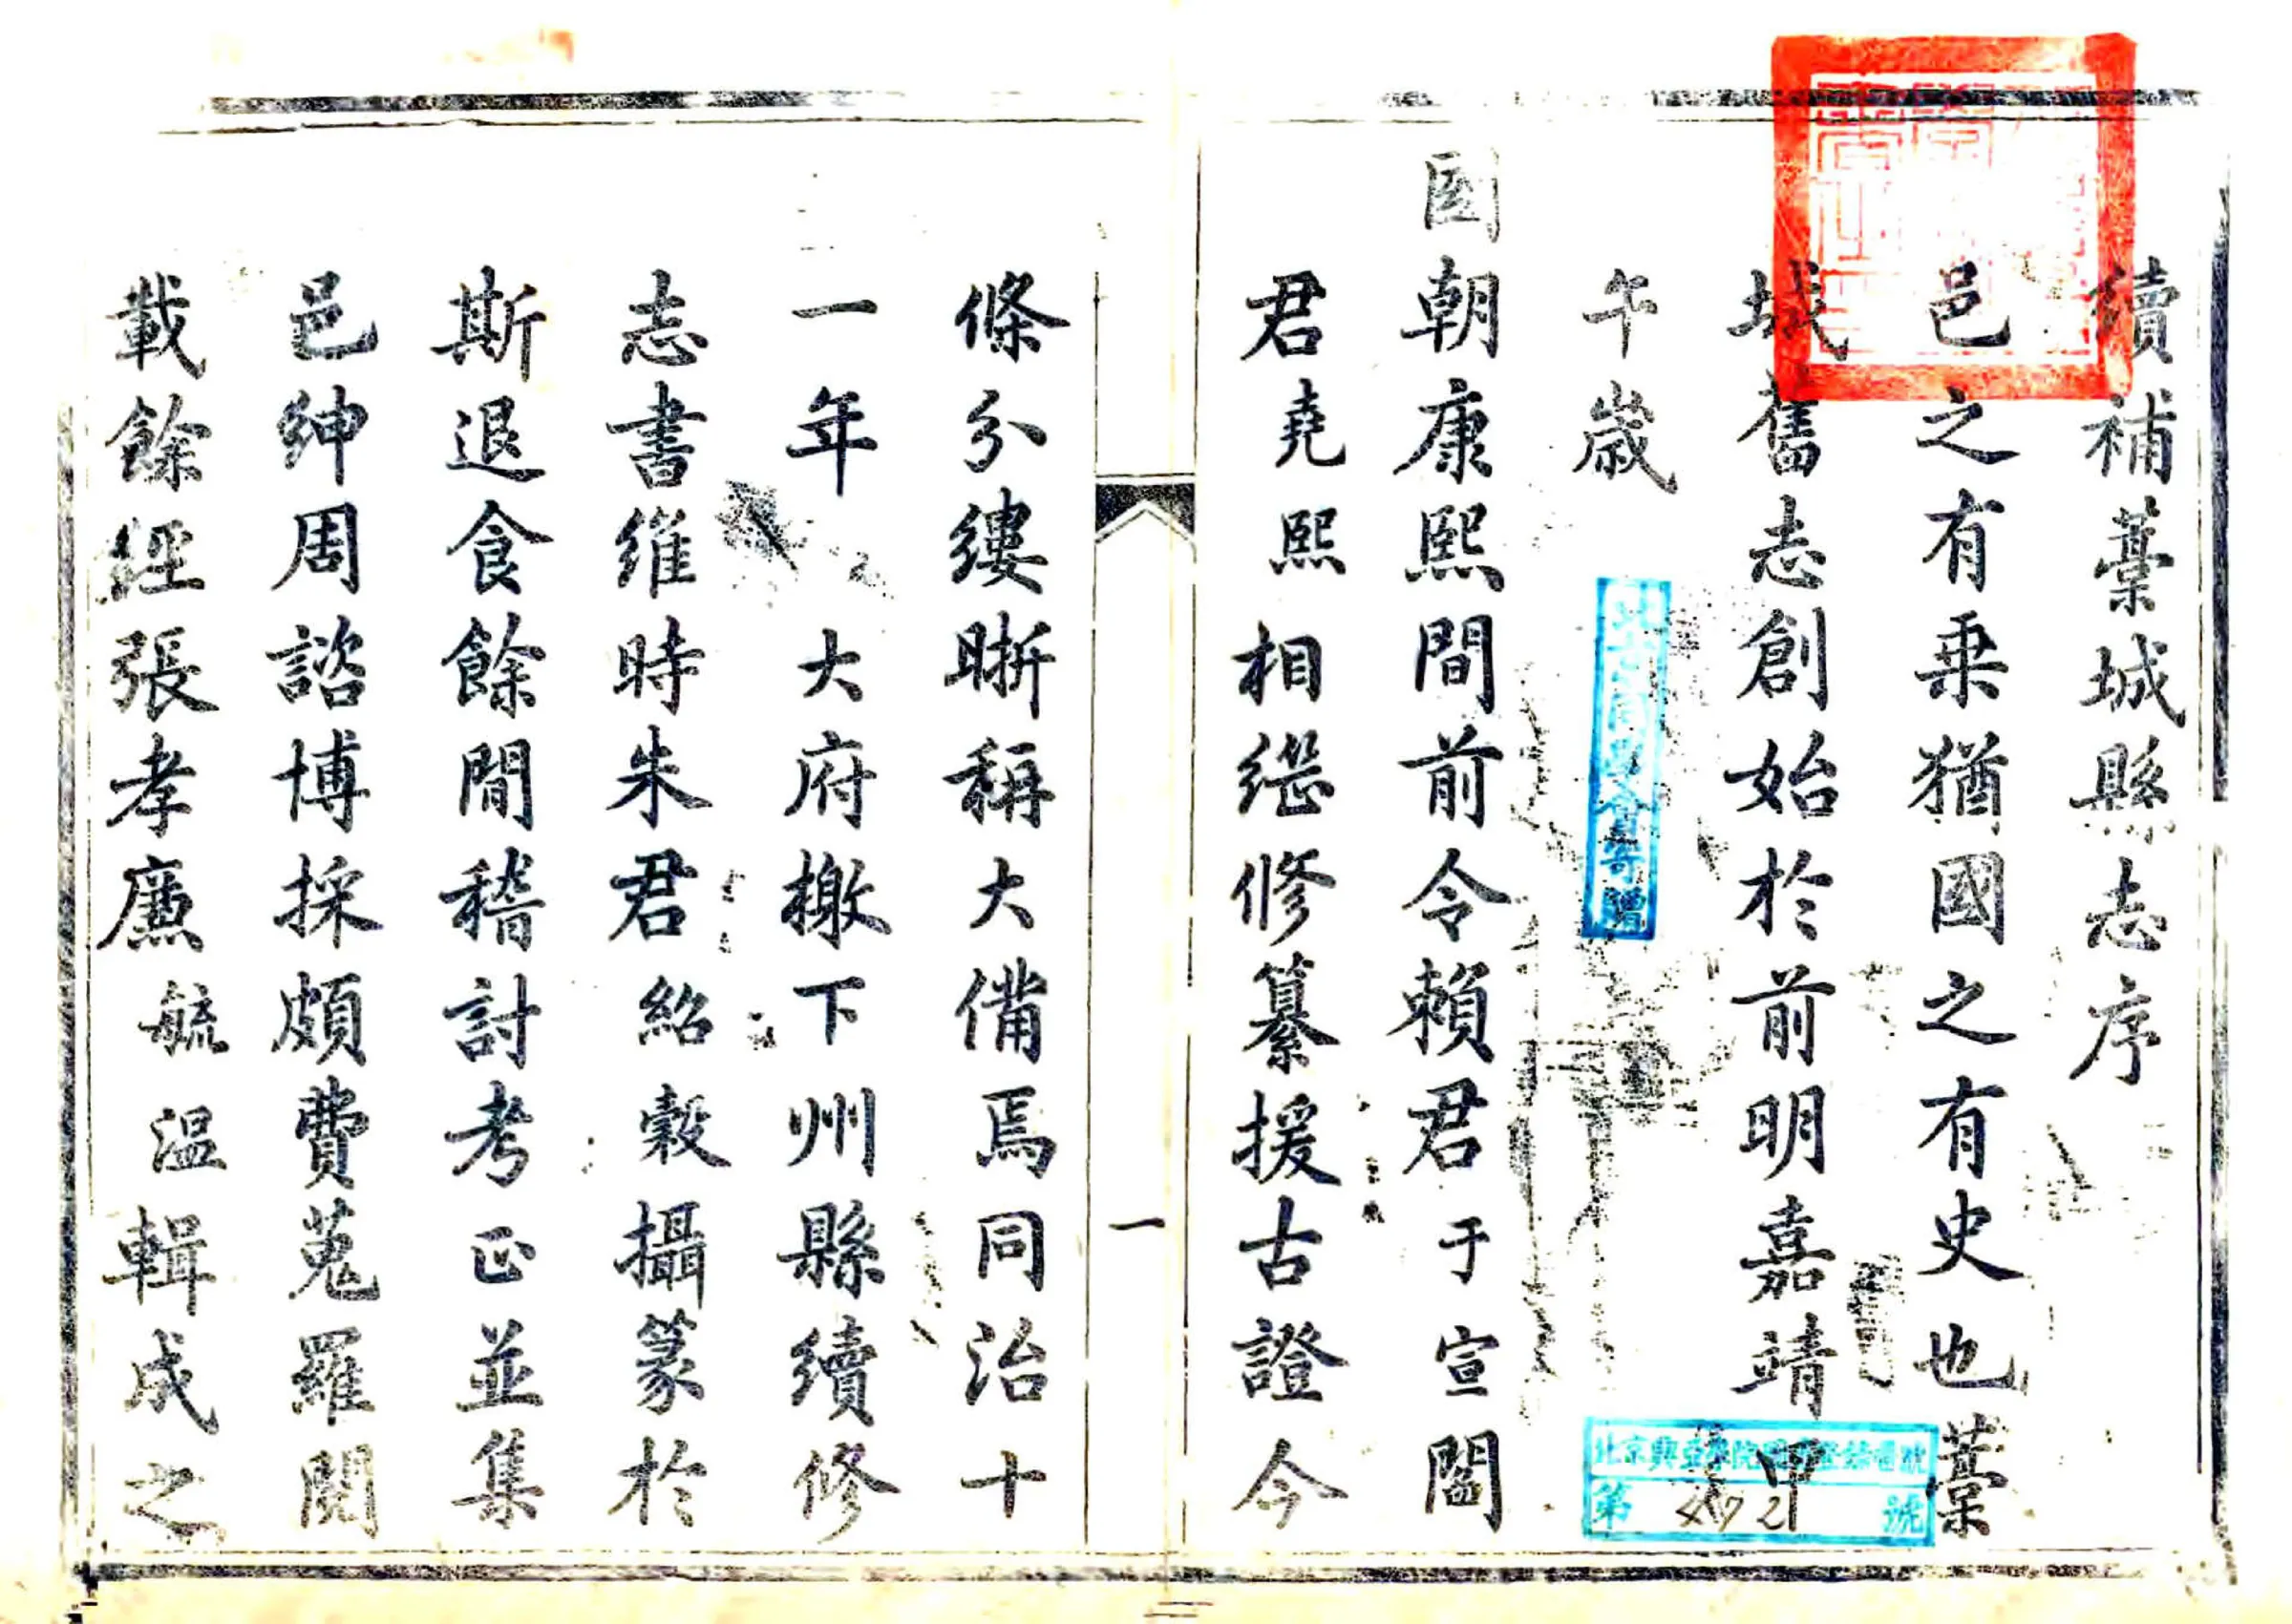 續補藁城縣志序
邑之有乗猶國之有史也藁
城舊志創始於前明嘉靖甲
午歲
國朝康熙間前令賴君于宣閻
君堯熙相繼修纂援古證今
一
條分縷晰稱大備焉同治十
一年大府檄下州縣續修
志書維時朱君紹穀攝篆於
斯退食餘閒稽討考正並集
邑紳周諮博採頗費蒐羅閱
載餘經張孝廉毓溫輯成之
北京興亞學院圖書登錄番號
第 472 號